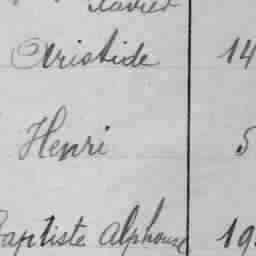 Xavier
Aristide 14
Henri 5
Baptiste Alphonse 19